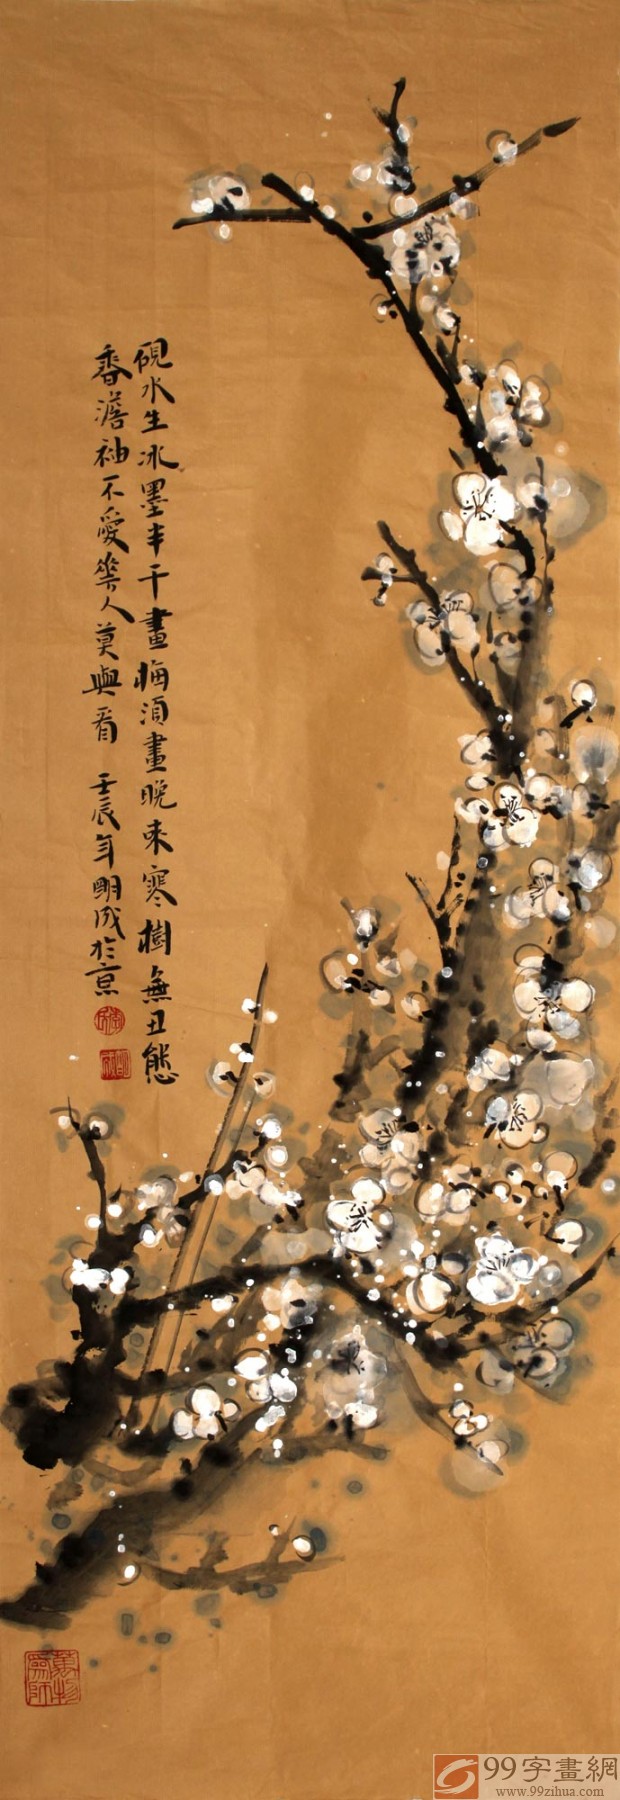 硯水生冰墨半干畫梅須畫晚來寒樹無丑態
香滿袖不愛華人莫與看 壬辰年明成於京
萬物為師
99字畫網
www.99zihua.com